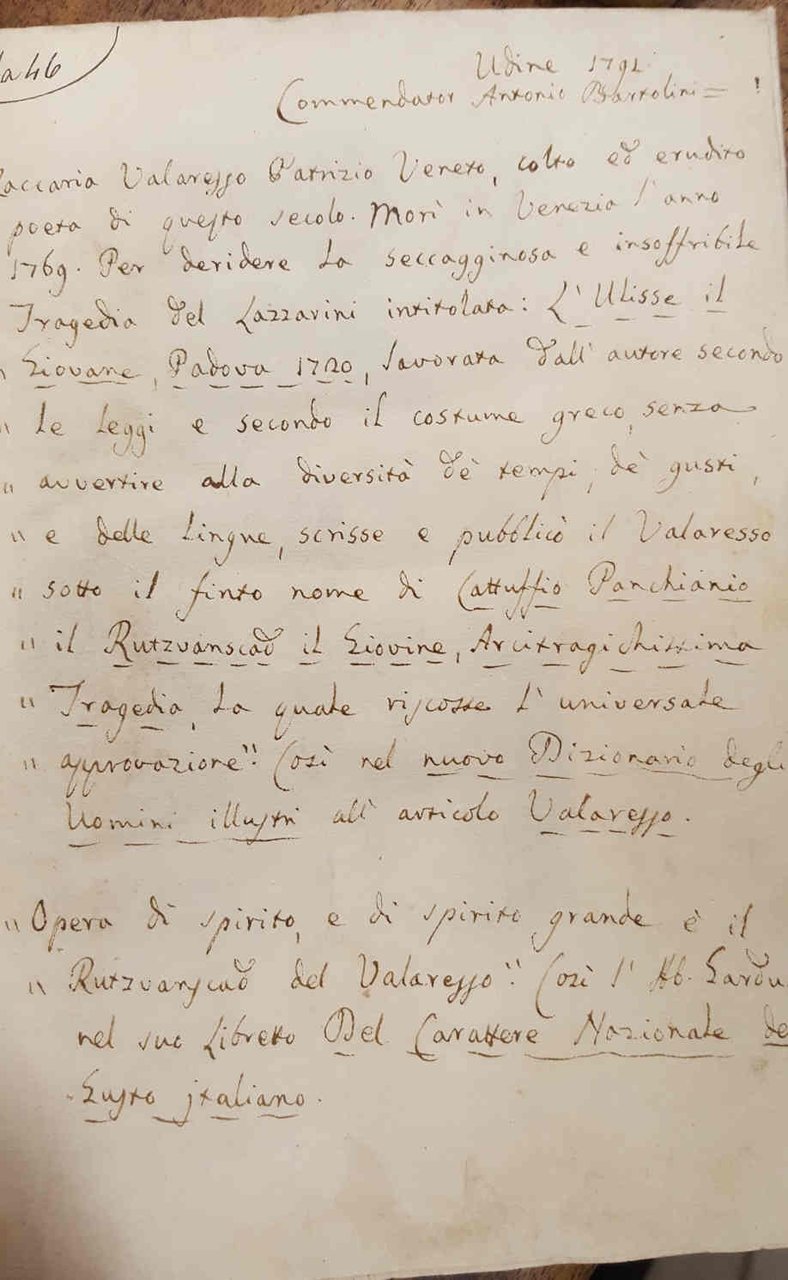 a 46
Udine 1791.
Commendator Antonio Bartolini =
Zaccaria Valaresso Patrizio Veneto, colto ed erudito
poeta di questo secolo. Morì in Venezia l'anno
1769. Per deridere la seccagginosa e insoffribile
Tragedia del Lazzarini intitolata: L'Ulisse il
Giovane, Padova 1720, lavorata dall'autore secondo
" le leggi e secondo il costume greco, senza
" avvertire alla diversità de' tempi, de' gusti,
" e delle lingue, scrisse e pubblicò il Valaresso
" sotto il finto nome di Cattuffio Panchianio
" il Rutzvanscad il Giovine, Arcitragichissima
" Tragedia, la quale riscosse l'universale
" approvazione". Così nel nuovo Dizionario degli
Uomini illustri all'articolo Valaresso.
" Opera di spirito, e di spirito grande è il
" Rutzvanscad del Valaresso". Così l'Ab. Gardu
nel suo Libretto Del Carattere Nazionale de
Gusto italiano.